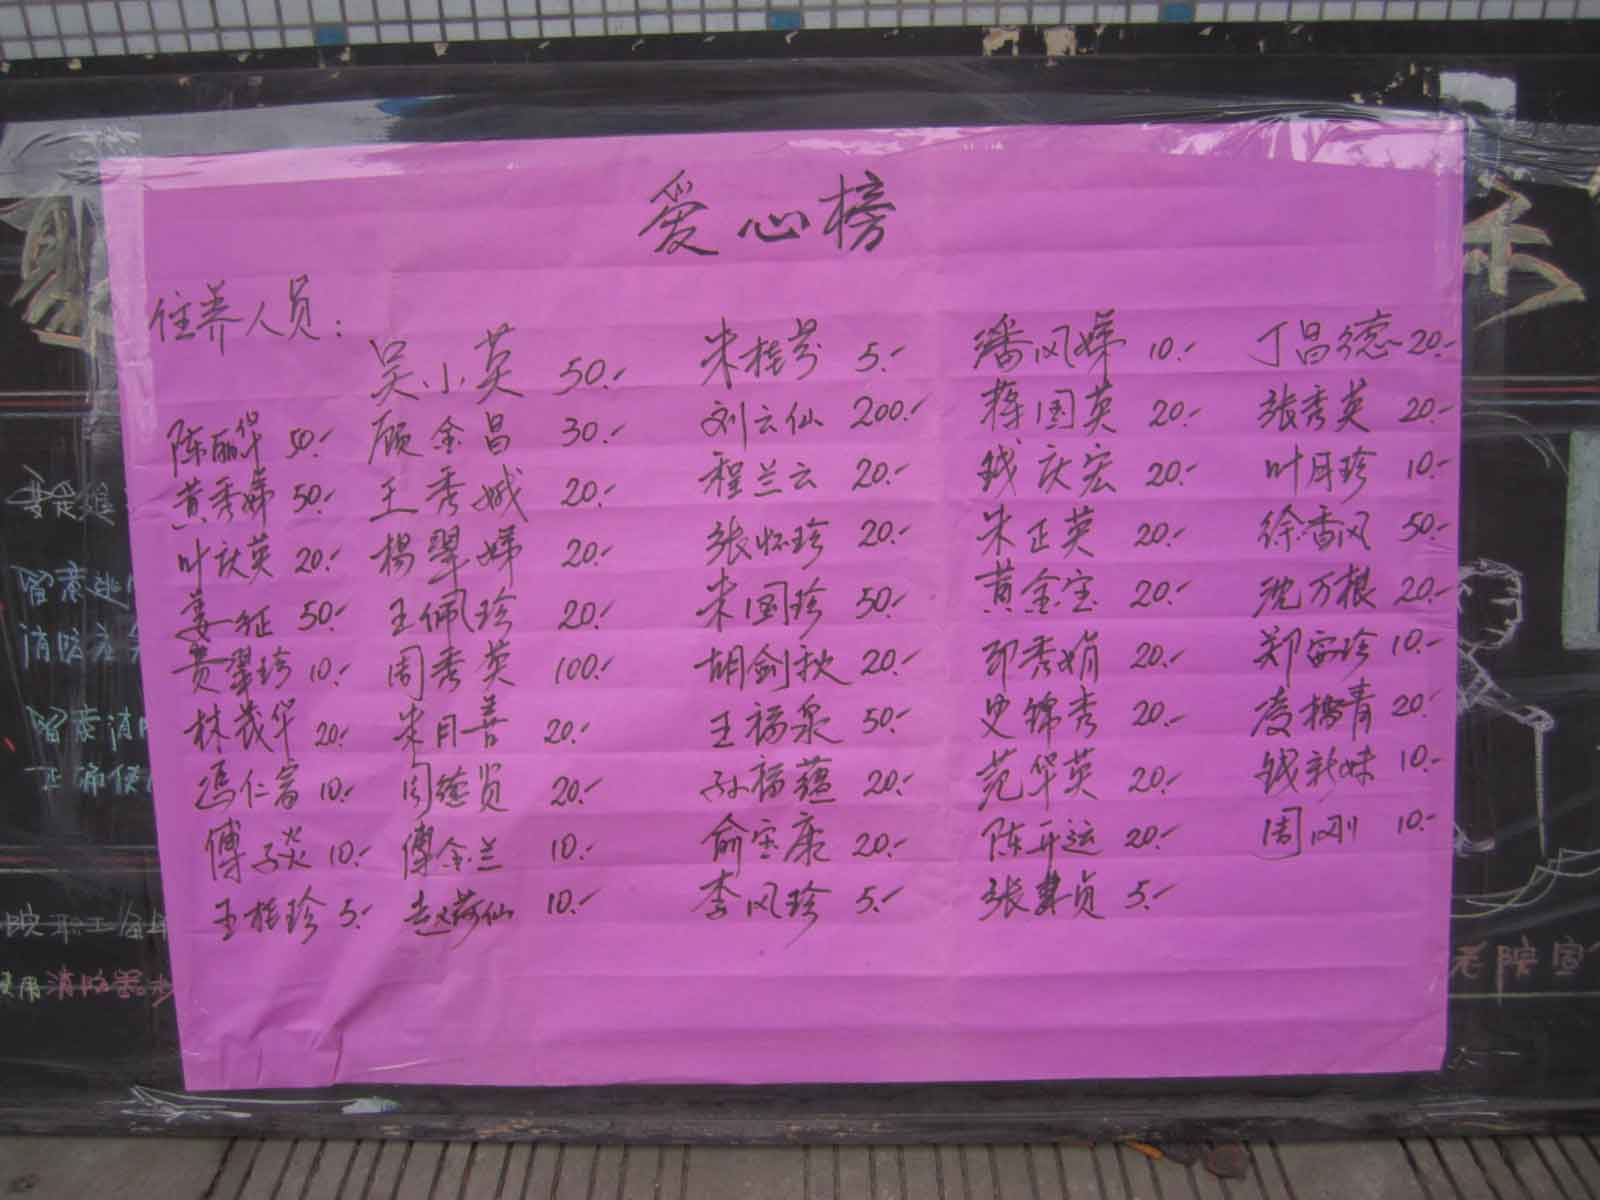 爱心榜
住养人员:
吴小英 50.- 朱桂芬 5.- 潘凤娣 10.- 丁昌德 20.-
陈丽华 50.- 顾金昌 30.- 刘云仙 200.- 蒋国英 20.- 张秀英 20.-
黄秀娣 50.- 王秀娥 20.- 程兰云 20.- 钱庆宏 20.- 叶月珍 10.-
叶庆英 20.- 杨翠娣 20.- 张怀珍 20.- 朱正英 20.- 徐香凤 50.-
姜征 50.- 王佩珍 20.- 朱国珍 50.- 黄金宝 20.- 沈万根 20.-
贵翠珍 10.- 周秀英 100.- 胡剑秋 20.- 邵秀娟 20.- 郑富珍 10.-
林茂华 20.- 朱月善 20.- 王福泉 50.- 史锦秀 20.- 凌梅青 20.-
冯仁富 10.- 周德贤 20.- 孙福蕴 20.- 范华英 20.- 钱新妹 10.-
傅子炎 10.- 傅金兰 10.- 俞宝康 20.- 陈开运 20.- 周刚 10.-
王桂珍 5.- 赵荷仙 10.- 李凤珍 5.- 张其贞 5.-
留意
消防
留意消防
正确使
院职工
使用消防器
老院宣